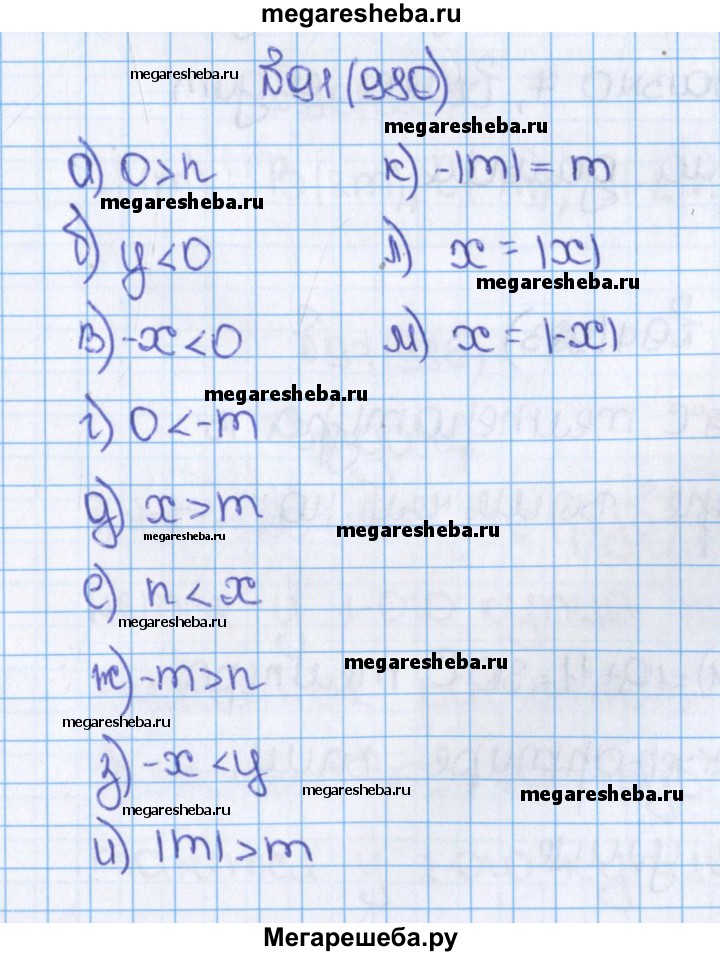 megaresheba.ru
№91 (980)
megaresheba.ru
megaresheba.ru
а) 0>n
megaresheba.ru
б) y<0
в) -x<0
megaresheba.ru
г) 0<-m
д) x>m
megaresheba.ru
megaresheba.ru
е) n<x
megaresheba.ru
ж) -m>n
megaresheba.ru
megaresheba.ru
з) -x<y
megaresheba.ru
megaresheba.ru
megaresheba.ru
и) |m|>m
к) -|m|= m
л) x = |x|
megaresheba.ru
м) x = |-x|
Мегарешеба.ру